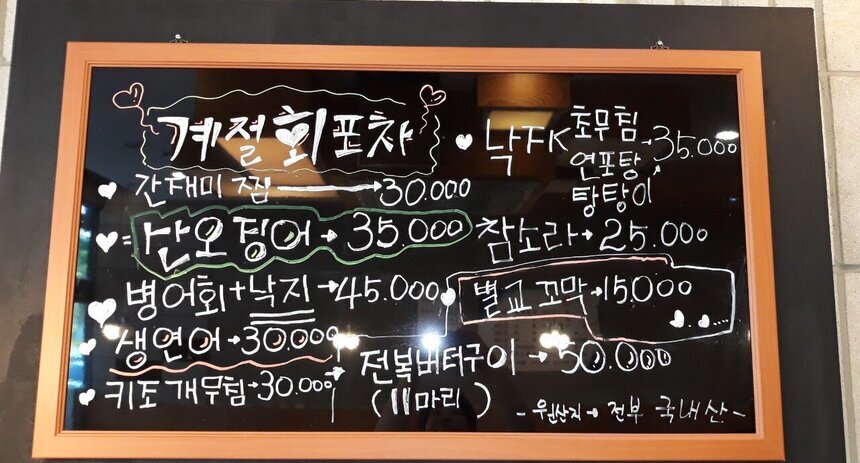 계절회포차
간재미찜 → 30.000
산오징어 → 35.000
병어회+낙지 → 45.000
생연어 → 30.000
키조개무침 → 30.000
낙지 초무침 연포탕 탕탕이 → 35.000
참소라 → 25.000
벌교 꼬막 → 15.000
전복버터구이 → 50.000
(11마리)
- 원산지 → 전부 국내산 -